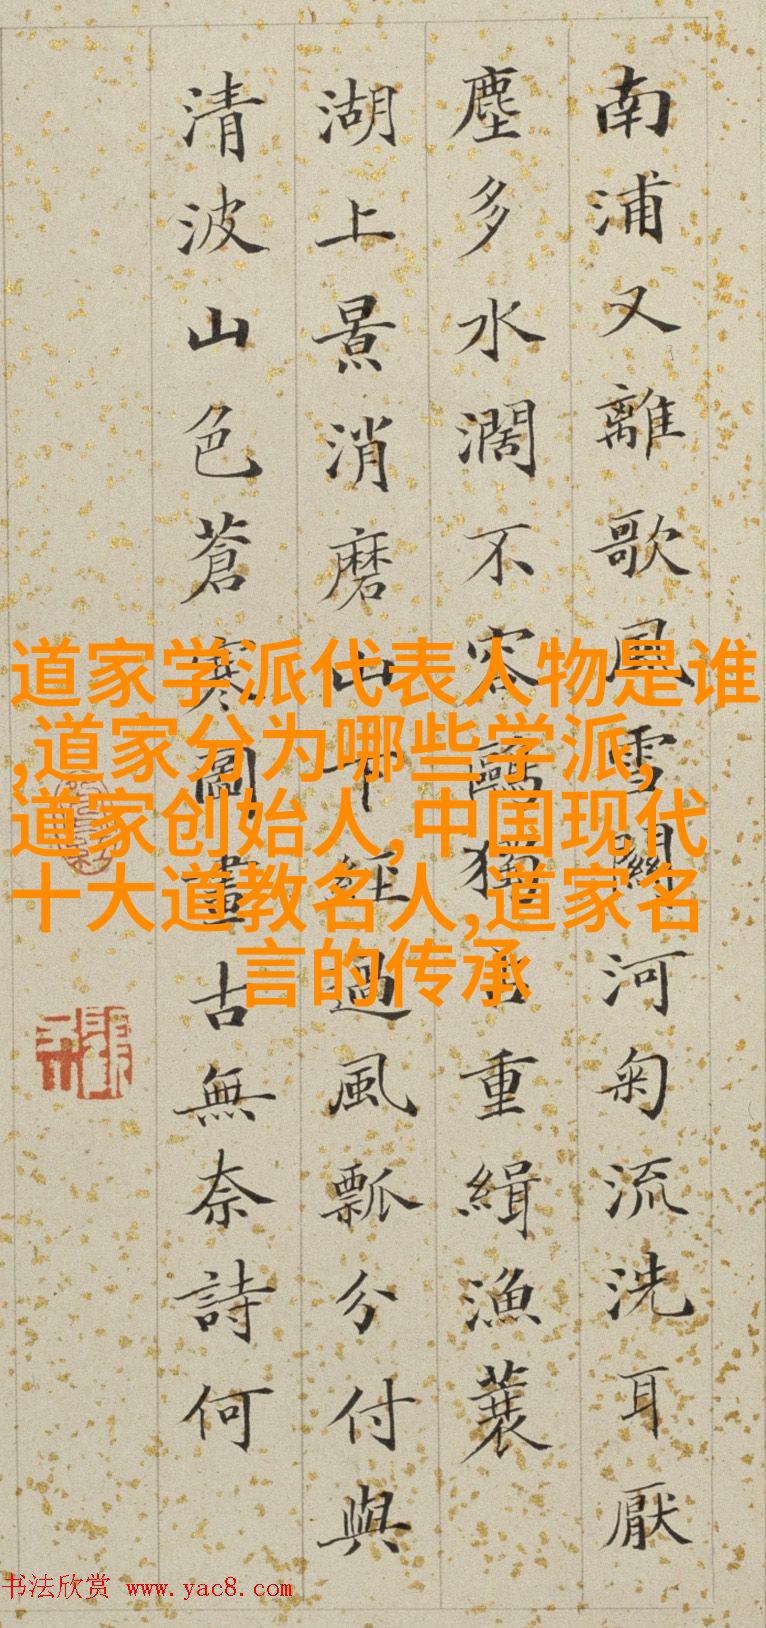 南浦又離歌風雪關河匊流洗耳厭
塵多水濶不容鷗獨重緝漁蓑
湖上景消磨山經過風瓢分付與
清波山色蒼寒圖畫古無奈詩何
道家学派代表人物是谁
,道家分为哪些学派,
道家创始人,中国现代
十大道教名人,道家名
言的传承
书法欣赏 www.yac8.com